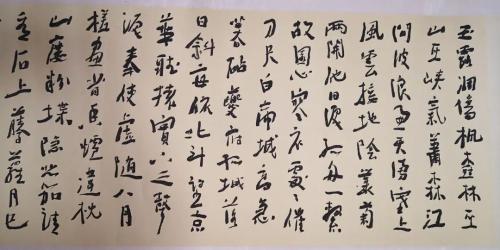 玉露凋傷楓樹林巫
山巫峽氣蕭森江
間波浪兼天湧塞上
風雲接地陰叢菊
兩開他日淚孤舟一繫
故園心寒衣處處催
刀尺白帝城高急
暮砧夔府孤城落
日斜每依北斗望京
華聽猿實下三聲
淚奉使虛隨八月
槎畫省香爐違枕
山樓粉堞隱悲笳請
看石上藤蘿月已